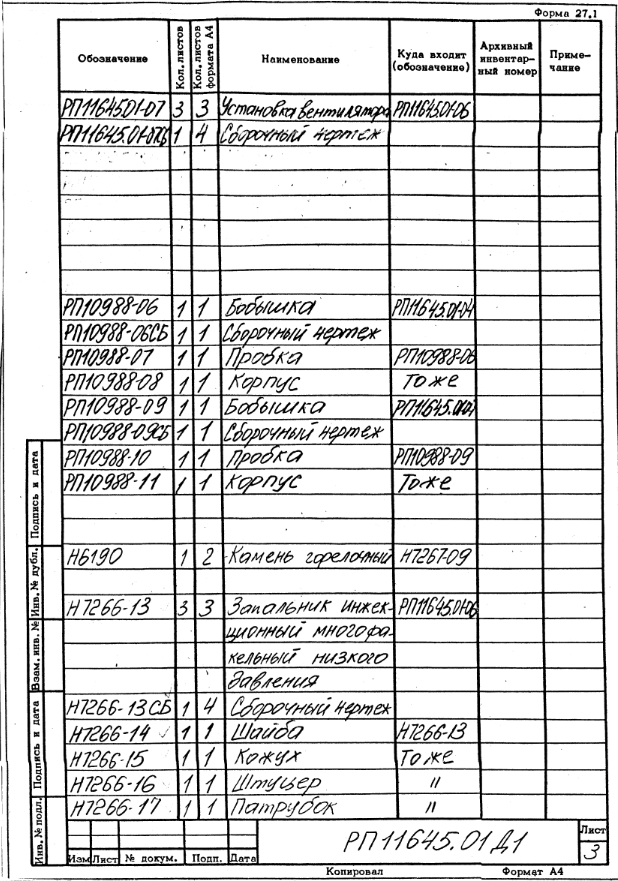 Форма 27.1
Обозначение Кол. листов Кол. листов формата А4 Наименование Куда входит (обозначение) Архивный инвентар-ный номер Приме-чание
РП11645.01-07 3 3 Установка вентилятора РП11645.01-06
РП11645.01-07СБ 1 4 Сборочный чертеж
РП10988-06 1 1 Бобышка РП11645.01-04
РП10988-06СБ 1 1 Сборочный чертеж
РП10988-07 1 1 Пробка РП10988-06
РП10988-08 1 1 Корпус То же
РП10988-09 1 1 Бобышка РП11645.01-04
РП10988-09СБ 1 1 Сборочный чертеж
РП10988-10 1 1 Пробка РП10988-09
РП10988-11 1 1 Корпус То же
Н6190 1 2 Камень горелочный Н7267-09
Н7266-13 3 3 Запальник инжек- РП11645.01-06
ционный многофа-
кельный низкого
давления
Н7266-13СБ 1 4 Сборочный чертеж
Н7266-14 1 1 Шайба Н7266-13
Н7266-15 1 1 Кожух То же
Н7266-16 1 1 Штуцер "
Н7266-17 1 1 Патрубок "
Подпись и дата
Инв. № дубл.
Взам. инв. №
Подпись и дата
Инв. № подл.
РП11645.01Д1
Лист
3
Изм Лист № докум. Подп. Дата
Копировал Формат А4